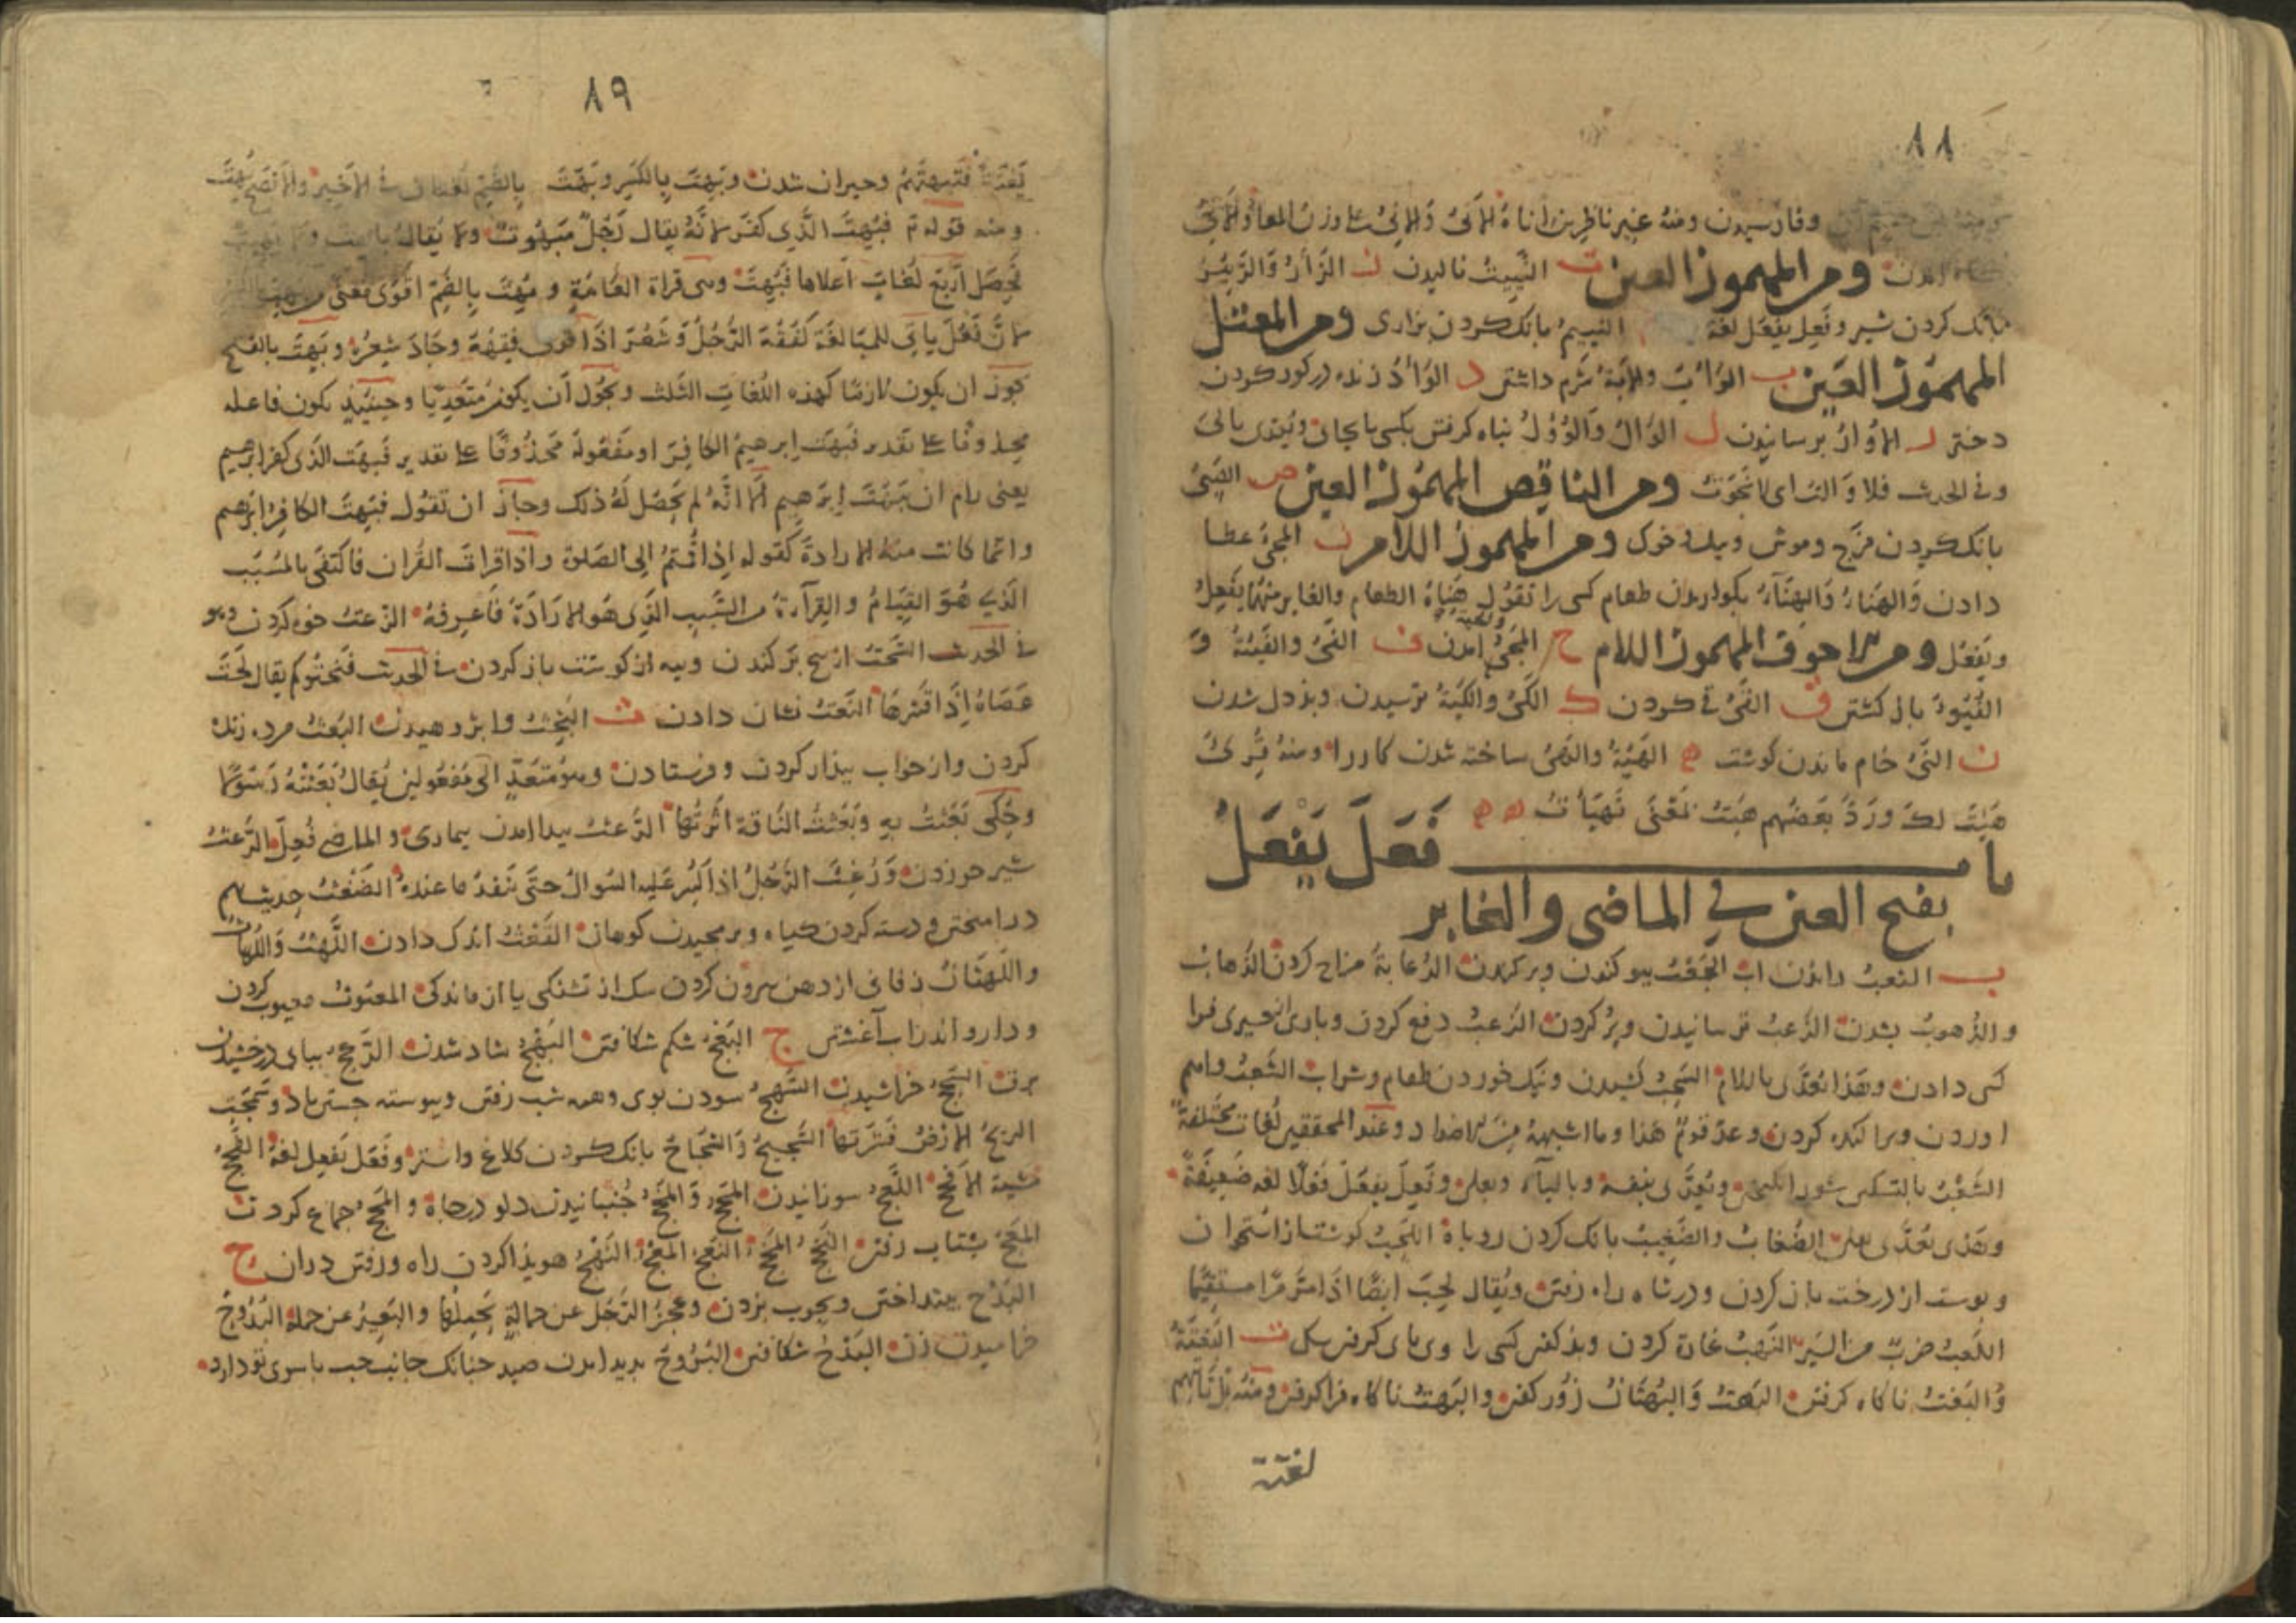 ٨٨
وفاد رسيدن ومنه غير ناظرين اناه الانى والانى على وزن المعا والانى
ومن المهموز العين ت النبيت ناليدن ر الزأر والزئير
بانك كردن شير وفعل يفعل لغة النئيم بانك كردن بزارى ومن المعتل
المهموز العين ب الوأب والابة شرم داشتن د الوأد زنده در كور كردن
دختر ر الاوار برسانيدن ل الوال والوؤل پناه كرفتن بكسى يا بجاى ويعدى بالى
وفي الحديث فلا والت اى لا نجوت ومن الناقص المهموز العين ص الصئى
بانك كردن مرغ وموش وپيل وخوك ومن المهموز اللام ن المجئ عطا
دادن والهناء والهناءة بكواريدن طعام كسى را تقول هنأه الطعام والغابر منهما يفعل
ويفعل ومن الاجوف المهموز اللام ج المجئ امدن ف الفئ والفيئة و
الفيوء باز كشتن ق القئ قى كردن ك الكئ والكيئة ترسيدن وبددل شدن
ن النئ خام ماندن كوشت ه الهيئة والهئ ساخته شدن كار را ومنه قرئ
هئت لك ورد بعضهم هئت بمعنى تهيأت ه ه
باب فعل يفعل
بفتح العين في الماضى والغابر
ب الثعب راندن اب الجعب بيوكندن وبر كردن الدعابة مزاح كردن الذهاب
والذهوب بشدن الرعب ترسانيدن وپر كردن الزعب دفع كردن وپاره از چيزى فرا
كسى دادن وهذا يعدى باللام السحب كشيدن ونيك خوردن طعام وشراب الشعب فراهم
اوردن وپراكنده كردن وعد قوم هذا وما اشبهه من الاضداد وعند المحققين لغات مختلفة
الشغب بالتسكين شور انكيختن ويعدى بنفسه وبالباء وبعلى وفعل يفعل فعلا لغة ضعيفة
وهذا يعدى بعلى الضغاب والضغيب بانك كردن روباه اللحب كوشت از استخوان
وپوست از درخت باز كردن ودر شاه راه رفتن ويقال لحب ايضا اذا مر مرا مستقيما
اللعب ضرب من السير النهب غارة كردن وبد كفتن كسى را وى پاى كرفتن سك ت البغتة
والبغت ناكاه كرفتن البهت والبهتان زور كفتن والبهت ناكاه فرا كرفتن ومنه بل تأتيهم
بغتة
٨٩
بغتة فتبهتهم وحيران شدن وبهت بالكسر وبهت بالضم لغتان في الاخير والافصح بهت
ومنه قوله تع فبهت الذي كفر لانه يقال رجل مبهوت ولا يقال باهت ولا بهيت
فحصل اربع لغات اعلاها فبهت وهى قراة العامة وبهت بالضم اقوى معنى من بهت بالكسر
لان فعل ياتى للمبالغة كفقه الرجل وشعر اذا قوى فقهه وجاد شعره وبهت بالفتح
يجوز ان يكون لازما كهذه اللغات الثلث ويجوز ان يكون متعديا وحينئذ يكون فاعله
محذوفا على تقدير فبهت ابرهيم الكافر او مفعوله محذوفا على تقدير فبهت الذى كفر ابرهيم
يعنى رام ان يبهت ابرهيم الا انه لم يحصل له ذلك وجاز ان تقول فبهت الكافر ابرهيم
وانما كانت منه الارادة كقوله اذا قمتم الى الصلوة واذا قرات القران فاكتفى بالمسبب
الذي هو القيام والقرآءة من السبب الذى هو الارادة فاعرفه الزعت خوه كردن وهو
في الحديث السحت از بيخ بركندن وپيه از كوشت باز كردن في الحديث فنحتوكم يقال لحت
عصاه اذا قشرها النعت نشان دادن ث البحث وا پژوهيدن البعث مرده زنده
كردن واز خواب بيدار كردن وفرستادن وهو متعد الى مفعولين يقال بعثته رسولا
وحكى بعثت به وبعثت الناقة اثرتها الدعث پيدا امدن بيمارى والماضى فعل الرغث
شير خوردن ورغث الرجل اذا اكثر عليه السوال حتى نفد ما عنده الضغث حديث بهم
در امختن ودسته كردن كياه وبرمجيدن كوهان القعث اندك دادن اللهث واللهاث
واللهثان زفان از دهن بيرون كردن سك از تشنكى يا از ماندكى المغث معيوب كردن
ودارو اندر اب آغشتن ج البعج شكم شكافتن البهج شاد شدن الرعج بياپى درخشيدن
برق السحج خراشيدن السهج سودن بوى وهمه شب رفتن وپيوسته جستن باد وسهجت
الريح الارض قشرتها الشحيج والشحاج بانك كردن كلاغ واستر وفعل يفعل لغة الفحج
مشية الافحج اللعج سوزانيدن المخج والمخج جنبانيدن دلو در چاه والمخج جماع كردن
المعج بشتاب رفتن النهج هويدا كردن راه ورفتن دران ح
البدح بينداختن وبچوب بزدن وعجز الرجل عن حمالة يحملها والبعير عن حمله البدوح
خراميدن زن البدح شكافتن البروح پديد امدن صيد چنانك جانب چپ باسوى تو دارد